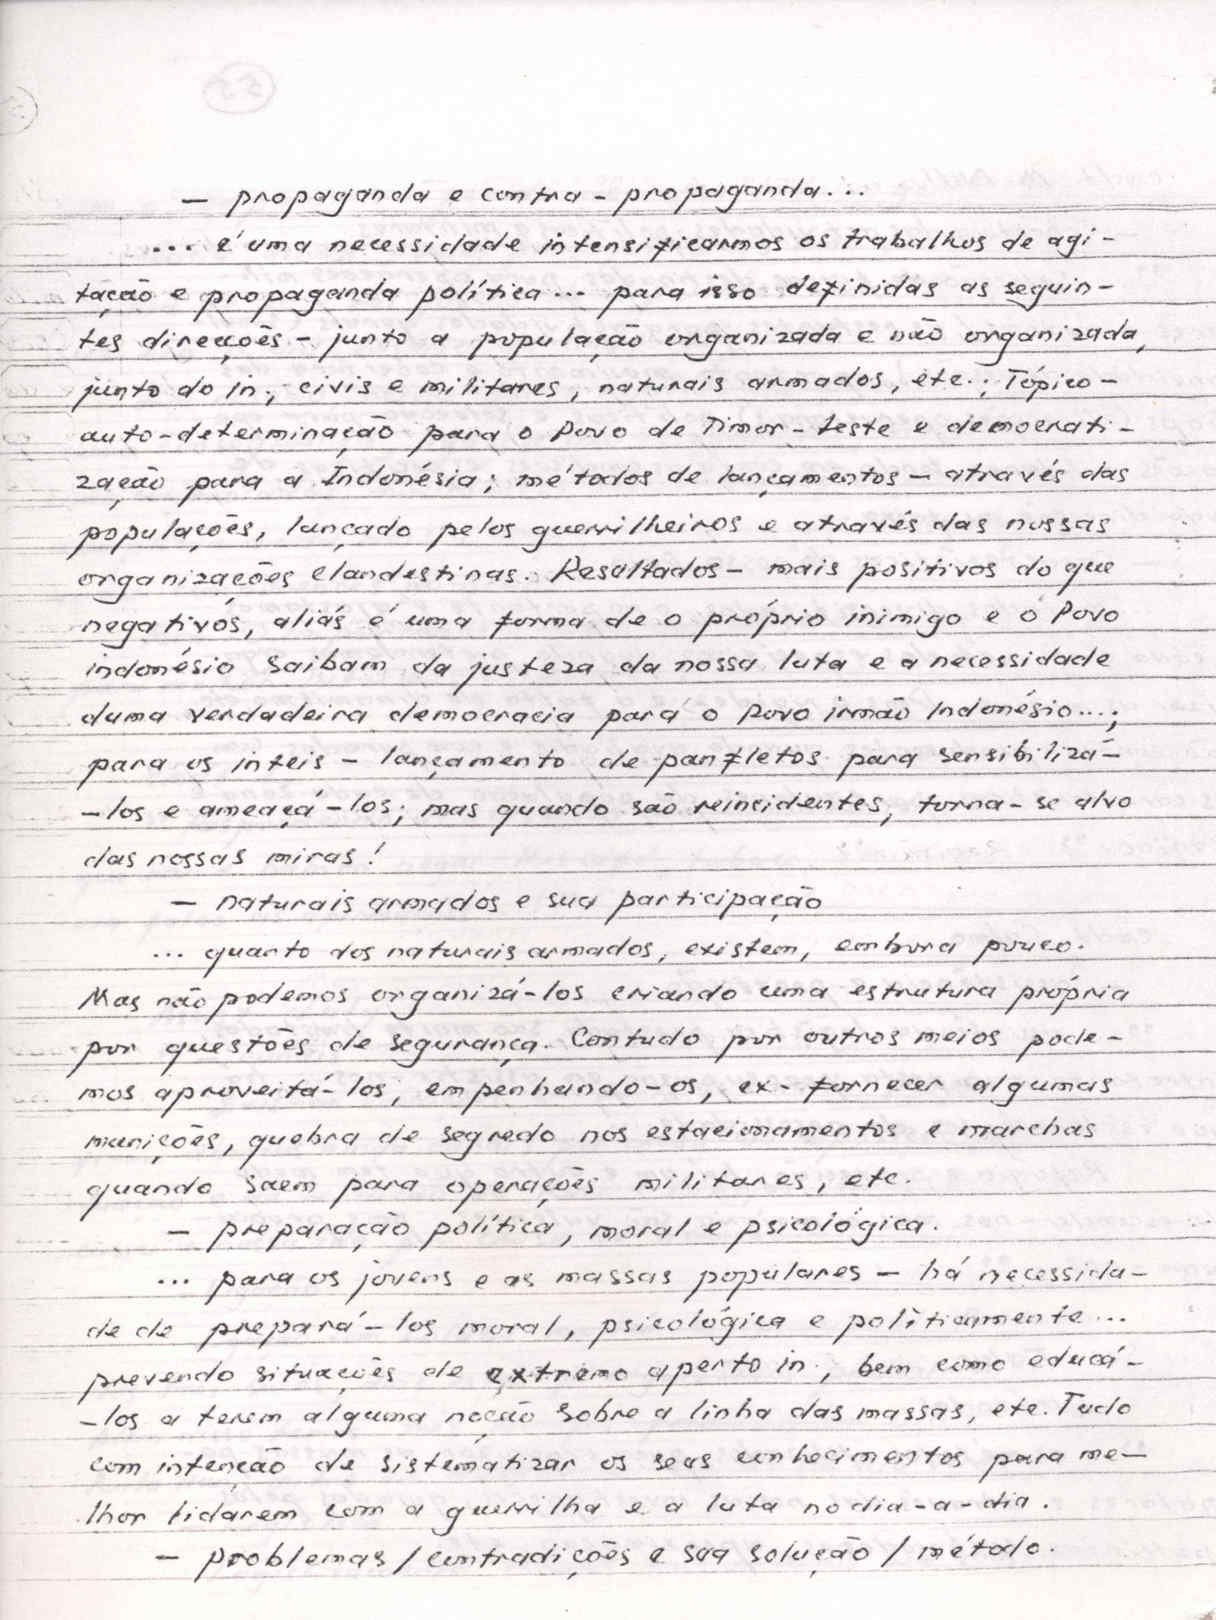 — propaganda e contra-propaganda...
... é uma necessidade intensificarmos os trabalhos de agi-
tação e propaganda política... para isso definidas as seguin-
tes direcções - junto a população organizada e não organizada,
junto do in.; civis e militares, naturais armados, etc.; Tópico -
auto-determinação para o Povo de Timor-Leste e democrati-
zação para a Indonésia; métodos de lançamentos - através das
populações, lançado pelos guerrilheiros e através das nossas
organizações clandestinas. Resultados - mais positivos do que
negativos, aliás é uma forma de o próprio inimigo e o Povo
indonésio saibam da justeza da nossa luta e a necessidade
duma verdadeira democracia para o Povo irmão Indonésio...;
para os inteis - lançamento de panfletos para sensibilizá-
-los e ameaçá-los; mas quando são reincidentes, torna-se alvo
das nossas miras!
— naturais armados e sua participação
... quanto dos naturais armados, existem, embora pouco.
Mas não podemos organizá-los criando uma estrutura própria
por questões de segurança. Contudo por outros meios pode-
mos aproveitá-los, empenhando-os, ex- fornecer algumas
munições, quebra de segredo nos estacionamentos e marchas
quando saem para operações militares, etc.
— preparação política, moral e psicológica.
... para os jovens e as massas populares - há necessida-
de de prepará-los moral, psicológica e políticamente...
prevendo situações de extremo aperto in., bem como educá-
-los a terem alguma noção sobre a linha das massas, etc. Tudo
com intenção de sistematizar os seus conhecimentos para me-
lhor lidarem com a guerrilha e a luta no dia-a-dia.
— problemas/contradições e sua solução/método.